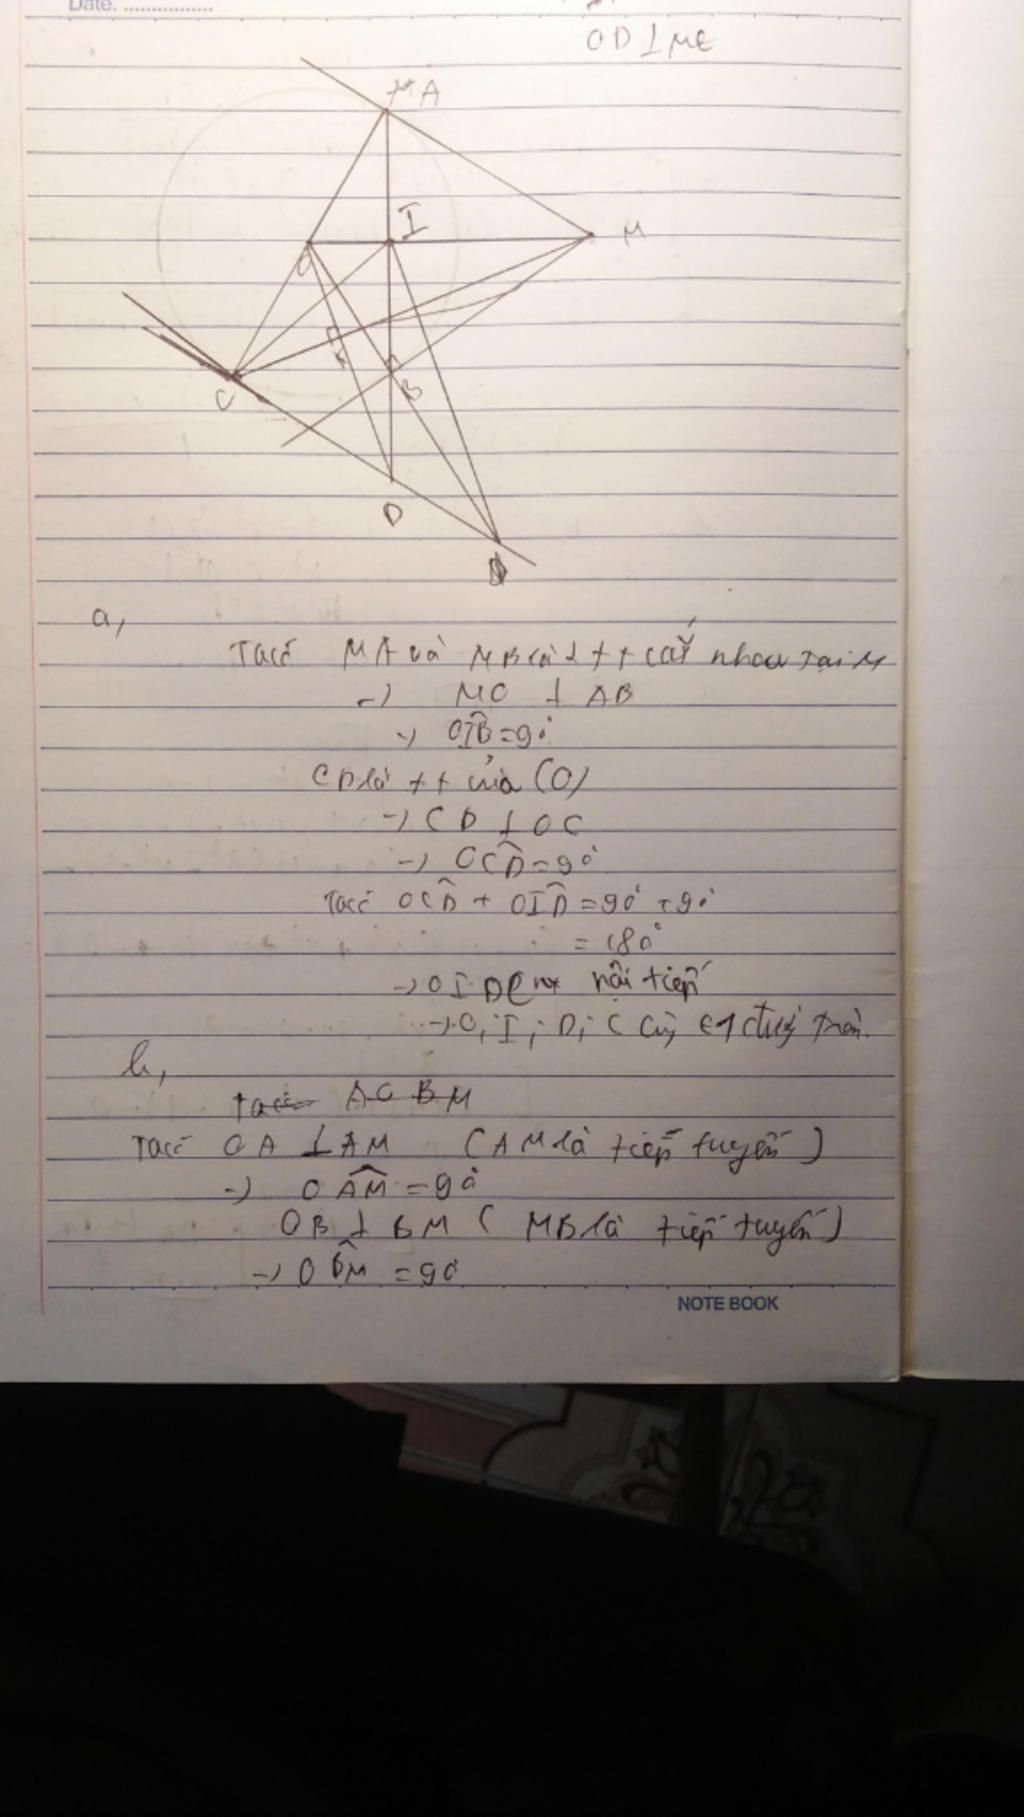 Date. ................
OD ⊥ ME
A
I
M
O
C
B
D
a,
Ta có MA và MB là 2 tt cắt nhau tại M
-> MO ⊥ AB
-> OIB = 90°
CD là tt của (O)
-> CD ⊥ OC
-> OCD = 90°
Ta có OCD + OID = 90° + 90°
= 180°
-> OIDC nội tiếp
-> O, I, D, C cùng € 1 đường tròn.
b,
Ta có AC BM
Ta có OA ⊥ AM (AM là tiếp tuyến)
-> OAM = 90°
OB ⊥ BM (MB là tiếp tuyến)
-> OBM = 90
NOTE BOOK